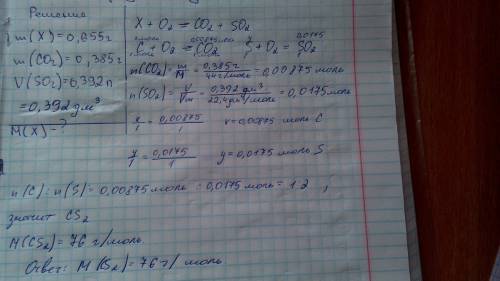 Решение
m(X)=0,655г
m(CO₂)=0,385г
V(SO₂)=0,392л
=0,392дм³
M(X)-?
X + O₂ = CO₂ + SO₂
C + O₂ = CO₂ S + O₂ = SO₂
n(CO₂)= m/M = 0,385г / 44г/моль = 0,00875 моль
n(SO₂)= V/Vm = 0,392 дм³ / 22,4дм³/моль = 0,0175моль
x/1 = 0,00875/1 x=0,00875 моль C
y/1 = 0,0175/1 y=0,0175 моль S
n(C):n(S)=0,00875моль:0,0175моль=1:2,
значит CS₂
M(CS₂)=76 г/моль.
Ответ: M(CS₂)=76г/ моль